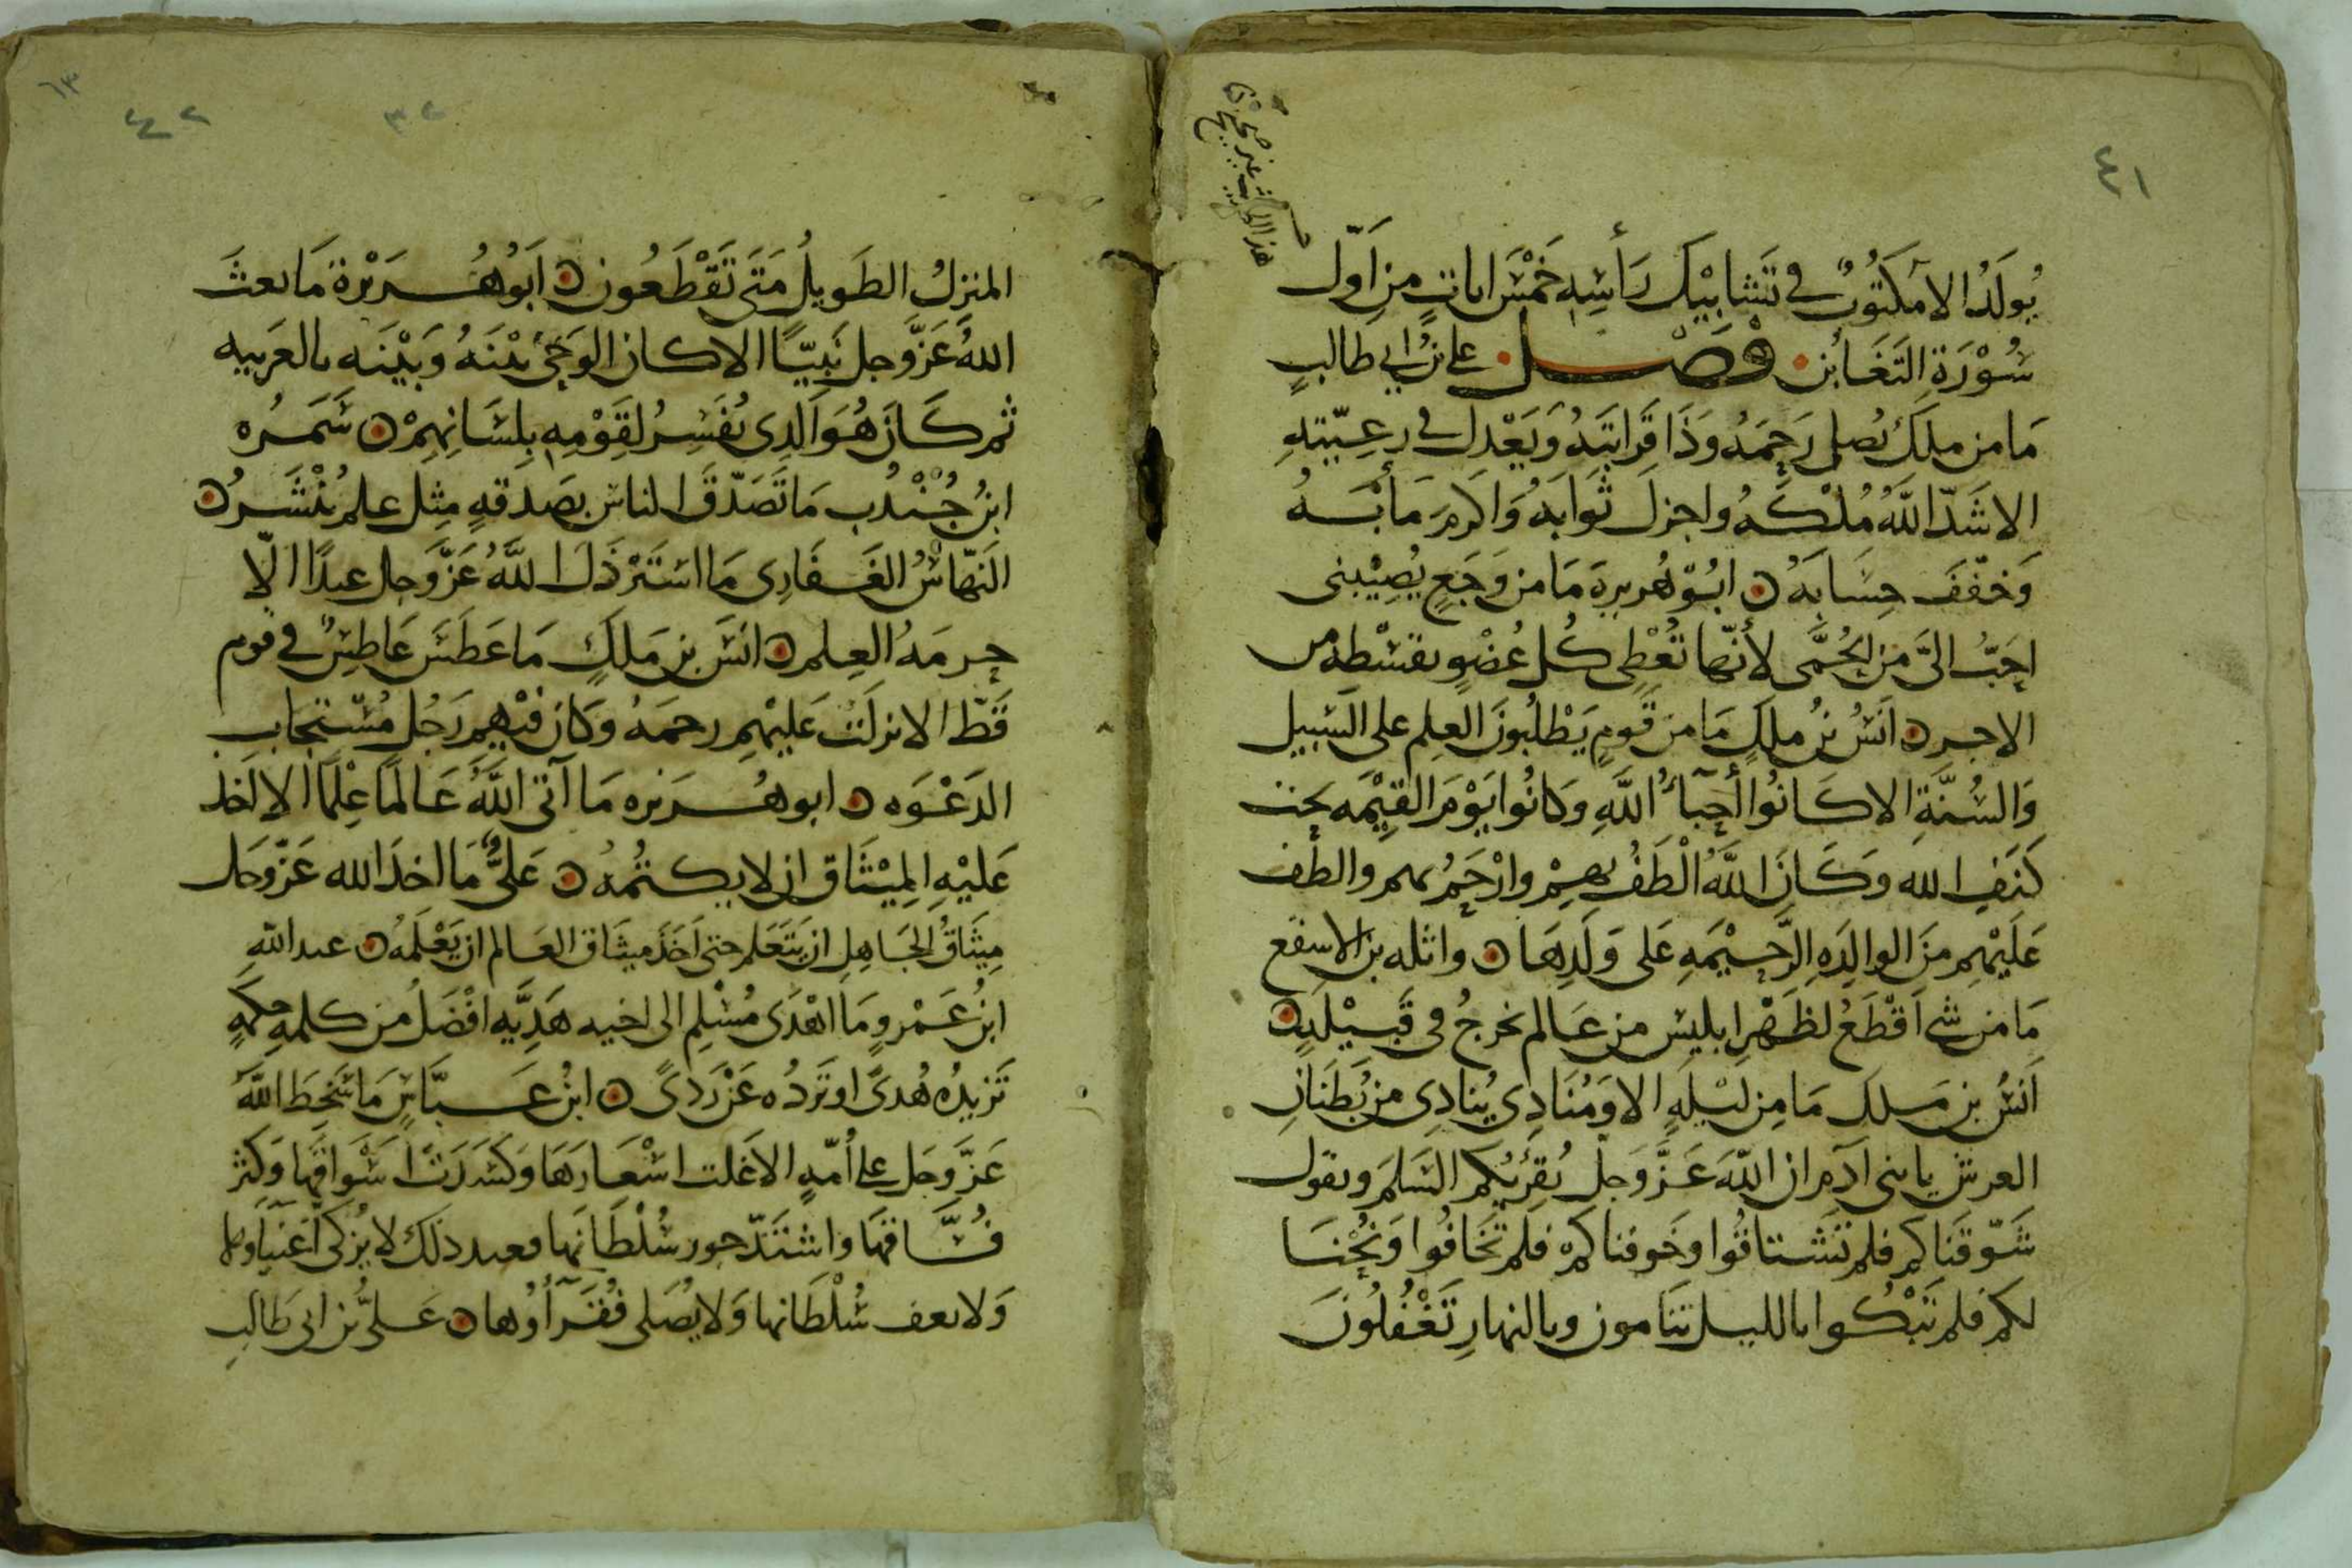 ٤١
هذا الحديث غير صحيح
يُولَدُ الا مَكتُوبٌ في تَشابيْك رَأسِهِ خَمْسَ اياتٍ مِن اَوّل
سُوْرَة التَغَابُن فصل علي بن ابي طالبٍ
مَا من ملِكٍ يَصِل رَحِمَهُ وَذَا قَرَابَتِهِ وَيَعْدِل في رعِيّتِهِ
الا شَدّ اللّهُ مُلْكَهُ واجزلَ ثَوَابَهُ وَاكرمَ مَأبَهُ
وَخفّفَ حِسَابَهُ ابُوْ هُريرة مَا من وَجَعٍ يُصِيْبنى
احَبُّ الىَّ مِن الحُمَّى لأَنّها تُعْطِى كُل عُضْوٍ بقسْطِه من
الاجر انَسُ بنُ ملكٍ مَا مِن قَومٍ يَطْلُبُونَ العِلم على السَبيل
وَالسُنَّةِ الا كَانُوا أحِبآءُ اللَّهِ وَكانُوا يَوْمَ القِيٰمَه تحت
كَنَفِ الله وَكَانَ اللَّهُ الْطَفُ بهِمْ وارْحَمُ بهم والطف
عَلَيْهِم مِنَ الوالِدَهِ الرَّحِيْمَهِ عَلى وَلَدِهَا واثله بن الاسقع
مَا من شى اَقْطَعُ لظَهْرِ ابليس من عَالم يخرجُ فى قَبيْلَهٍ
اَنسُ بن مَلك مَا مِن لَيْلَهٍ الا وَمُنَادِى يُنادِى مِن بُطْنَانِ
العرش يا بنى آدم ان اللّهَ عَزَّ وَجلّ يُقرئكم السَلمَ ويقول
شَوّقنَاكم فلم تَشتاقُوا وَخَوفناكم فلم تخَافُوا وَنُحْنَا
لكم فلم تَبْكُوا بالليل تنَامون وبالنهارِ تَغْفُلُونَ
٦٣
٤٢
٣٢
المنزلُ الطَويلُ مَتَى تَقْطَعُون اَبُوهُرَيْرة مَا بعثَ
اللهُ عَزَّوجل نَبيّاً الا كان الوَحْىُ بيْنَهُ وَبَيْنَه بالعَربيه
ثم كَانَ هُوَ الَذِى يُفَسِرُ لقَوْمِه بِلِسَانِهِمْ سَمَرُه
ابنُ جُنْدُب مَا تَصَدَّقَ الناس بصَدقهٍ مِثِل علم يُنْشَرُ
النَهّاسُ الغَفَارِى مَا استَرْذَلَ اللَّهُ عَزَّوَجل عبدًا الّا
حرمَهُ العِلم انَس بن مَلكٍ مَا عَطَسَ عَاطِسٌ في قوم
قَطّ الا نزلَتْ عَلَيْهِم رحمَهُ وَكانَ فيْهِم رَجُل مُسْتجابِ
الدَعْوَه ابو هُرَيره مَا آتى اللَّهُ عَالمًا عِلمًا الا اخذ
عَليْهِ المِيْثَاق ان لا يكتُمُهُ عَلىٌّ مَا اخذَ الله عَزّوَجل
مِيثَاقَ الجَاهِل ان يتَعَلم حتى اَخذَ ميثَاق العَالم ان يَعْلَمَهُ عبد اللّهِ
ابنُ عَمْروٍ مَا اهْدَى مُسْلِم الى اخيه هَدِيَّه افْضَلُ مِن كلمهِ حكمهٍ
تَزيدُه هُدىً او تَردُه عَن رَدىً ابنُ عَبّاسٍ مَا سَخِطَ اللَّهُ
عَزّوجَل على اُمّهٍ الا غلت اسْعَارَهَا وَكسَدَتْ اسْوَاقهَا وَكثر
فُسّاقهَا وَاشتَدّ جور سُلْطَانهَا فعند ذلك لا يُزكى اَغنياوها
وَلا يعف سُلْطَانها وَلا يُصَلى فُقَرآؤُها عَلىُّ بن ابى طَالبِ